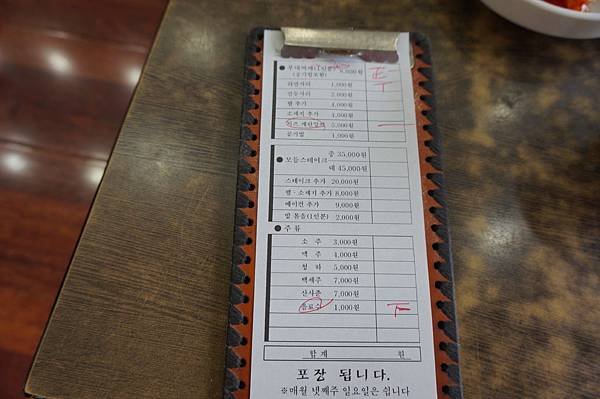 ● 부대찌개(1인분) 8,000원
(공기밥포함)
라면사리 1,000원
만두사리 2,000원
햄 추가 4,000원
소세지 추가 4,000원
치즈 계란말이 5,000원
공기밥 1,000원
● 모듬스테이크
중 35,000원
대 45,000원
스테이크 추가 20,000원
햄 · 소세지 추가 8,000원
베이컨 추가 9,000원
밥 볶음(1인분) 2,000원
● 주 류
소 주 3,000원
맥 주 4,000원
청 하 5,000원
백세주 7,000원
산사춘 7,000원
음료수 1,000원
합 계 원
포장 됩니다.
※매월 넷째주 일요일은 쉽니다